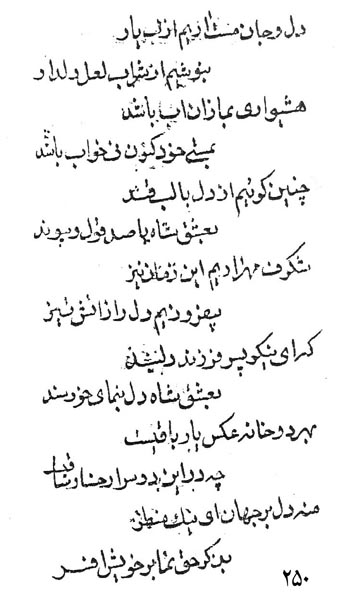 دل و جان مست داریم از لب یار
بنوشیم از شراب لعل دلدار
هشیواری نما زان اب باشد
بمستی خود کنون نی خواب باشد
چنین کوئیم از دل بالب قند
بعشق شاه با صد قول و پیوند
شکرف مهر داریم این زمان نیز
بیفروزیم دل را زاتش تیز
کرای نیکو پسر فرزند دلبند
بعشق شاه دل بنمای خورسند
بهر دو خانه عکس یار باقیست
چه در این
منه دل بر جهان ای نیک منطق
بذکر حق نما بر خویش افسر
۲۵۰